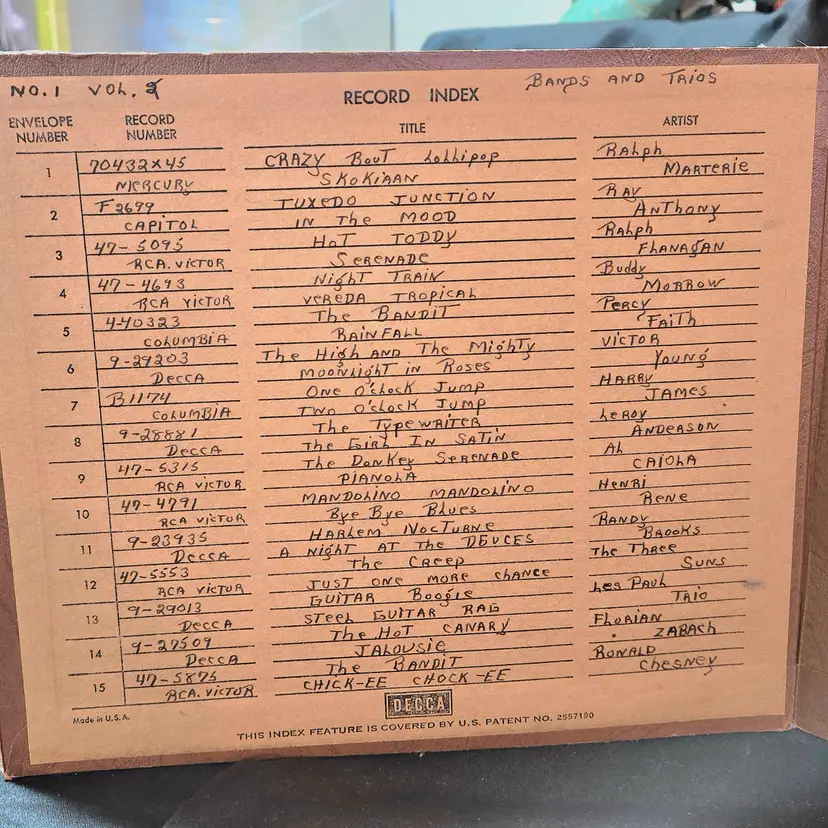 NO.1 VOL. 3 RECORD INDEX BANDS AND TRIOS
ENVELOPE NUMBER RECORD NUMBER TITLE ARTIST
1 70432X45 CRAZY BOUT LOLLIPOP RALPH
MERCURY SKOKIAAN MARTERIE
2 F2699 TUXEDO JUNCTION RAY
CAPITOL IN THE MOOD ANTHONY
3 47-5095 HOT TODDY RALPH
RCA.VICTOR SERENADE FLANAGAN
4 47-4693 NIGHT TRAIN BUDDY
RCA VICTOR VEREDA TROPICAL MORROW
5 4-40323 THE BANDIT PERCY
COLUMBIA RAINFALL FAITH
6 9-29203 THE HIGH AND THE MIGHTY VICTOR
DECCA MOONLIGHT IN ROSES YOUNG
7 B1174 ONE O'CLOCK JUMP HARRY
COLUMBIA TWO O'CLOCK JUMP JAMES
8 9-28881 THE TYPEWRITER LEROY
DECCA THE GIRL IN SATIN ANDERSON
9 47-5315 THE DONKEY SERENADE AL
RCA VICTOR PIANOLA CAIOLA
10 47-4791 MANDOLINO MANDOLINO HENRI
RCA VICTOR BYE BYE BLUES RENE
11 9-23935 HARLEM NOCTURNE RANDY
DECCA A NIGHT AT THE DEUCES BROOKS
12 47-5553 THE CREEP THE THREE
RCA VICTOR JUST ONE MORE CHANCE SUNS
13 9-29013 GUITAR BOOGIE LES PAUL
DECCA STEEL GUITAR RAG TRIO
14 9-27509 THE HOT CANARY FLORIAN
DECCA JALOUSIE ZABACH
15 47-5875 THE BANDIT RONALD
RCA.VICTOR CHICK-EE CHOCK-EE CHESNEY
DECCA
Made in U.S.A.
THIS INDEX FEATURE IS COVERED BY U.S. PATENT NO. 2557190